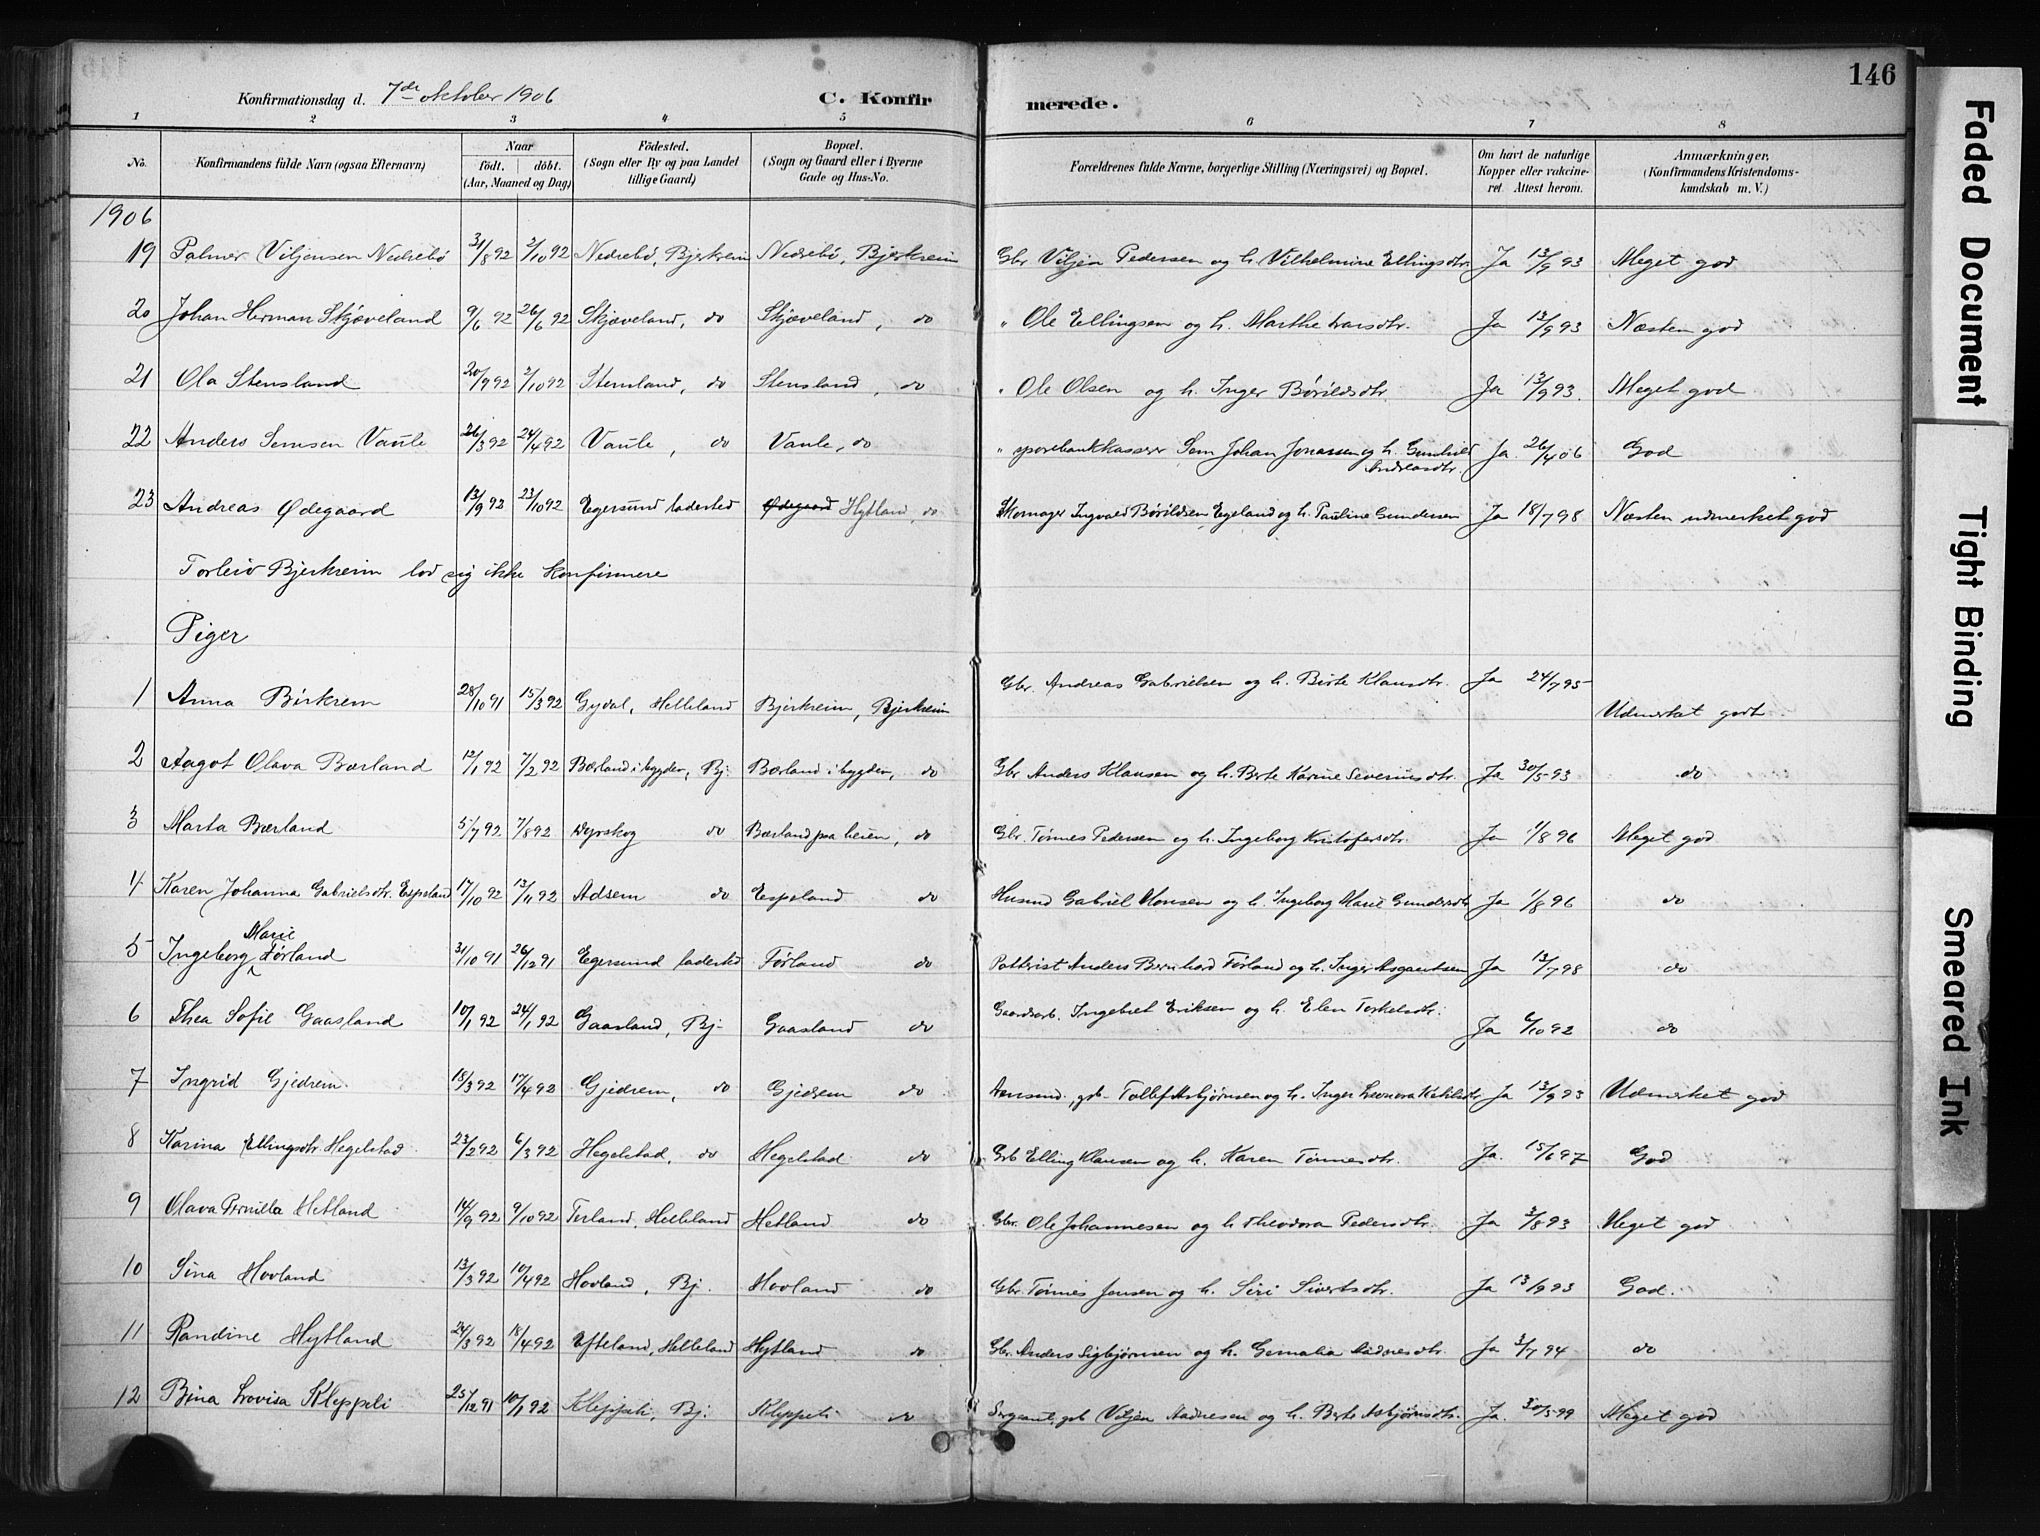 146
Konfirmationsdag d. 7de oktober 1906
C. Konfirmerede.
1 2 3 4 5 6 7 8
No.
Konfirmandens fulde Navn (ogsaa Efternavn)
Naar
født. døbt.
(Aar, Maaned og Dag)
Fødested.
(Sogn eller By og paa Landet
tillige Gaard)
Bopæl.
(Sogn og Gaard eller i Byerne
Gade og Hus-No.
Forældrenes fulde Navne, borgerlige Stilling (Næringsvei) og Bopæl.
Om havt de naturlige
Kopper eller vakcine-
ret. Attest herom.
Anmærkninger,
(Konfirmandens Kristendoms-
kundskab m. V.)
1906
19 Palmer Viljensen Nedrebö 31/8 92 2/10 92 Nedrebö, Bjerkreim Nedrebö, Bjerkreim Gbr. Viljen Pedersen og h. Vilhelmine Ellingsdtr. Ja 13/9 93 Meget god
20 Johan Herman Skjæveland 9/6 92 26/6 92 Skjæveland, do Skjæveland, do " Ole Ellingsen og h. Marthe Ja 13/9 93 Næsten god
21 Ola Stensland 20/9 92 2/10 92 Stensland, do Stensland, do " Ole Olsen og h. Inger Børildsdtr. Ja 13/9 93. Meget god
22 Anders Semsen Vaule 26/3 92 24/4 92 Vaule, do Vaule, do " sparebankkasserer Sem Johan Jonassen og h. Gunhild Andreasdtr. Ja 26/4 06 God
23 Andreas Ødegaard 13/9 92 23/10 92 Egersund ladested Ødegaard Hytland, do Skomager Ingvald Børildsen Egeland og h. Pauline Gundersen Ja 18/7 98 Næsten udmerket god
Torleiv Bjerkreim lod sig ikke konfirmere
Piger
1 Anna Birkrem 28/10 91 15/3 92 Gydal, Helleland Bjerkreim, Bjerkreim Gbr. Andreas Gabrielsen og h. Birte Klausdtr. Ja 24/7 95 Udmerket godt
2 Aagot Olava Bærland 12/1 92 7/2 92 Bærland i bygden, Bj. Bærland i bygden, do Gbr Anders Klausen og h. Berte Karine Severinsdtr. Ja 30/5 93 do
3 Marta Bærland 5/7 92 7/8 92 Dyrskog do Bærland paa heien, do Gbr. Tønnes Pedersen og h. Ingeborg Kristofersdtr. Ja 1/8 96 Meget god
4 Karen Johanna Gabrielsdtr. Espeland 17/10 92 13/11 92 Adsem do Espeland do Husmd Gabriel Monsen og h. Ingeborg Marie Gundersdtr Ja 1/8 96 do
5 Ingeborg Marie Førland 31/10 91 26/12 91 Egersund ladested Førland do Potterist Anders Bernhard Førland og h. Inger Asgautsen Ja 13/7 98 do
6 Thea Sofie Gaasland 10/1 92 24/1 92 Gaasland, Bj. Gaasland do Gaardarb. Ingebret Eriksen og h. Elen Torkelsdtr. Ja 6/10 92 do
7 Ingrid Gjedrem 18/3 92 17/4 92 Gjedrem, do Gjedrem do Lensmd., gb. Tollef Asbjørnsen og h. Inger Leonora Ketilsdtr Ja 13/9 93 Udmerket god
8 Karina Ellingsdtr. Hegelstad 23/2 92 6/3 92 Hegelstad, do Hegelstad do Grb Elling Klausen og h. Karen Tønnesdtr. Ja. 15/6 97 God
9 Olava Pernilla Hetland 14/9 92 9/10 92 Terland, Helleland Hetland do Gbr. Ole Johannesen og h. Theodora Pedersdtr. Ja 3/8 93 Meget god
10 Sina Hovland 13/3 92 10/4 92 Hovland, Bj. Hovland do Gbr. Tønnes Jensen og h. Siri Sivertsdtr. Ja 13/9 93 God.
11 Randine Hytland 24/3 92 18/4 92 Efteland, Helleland Hytland do Gbr. Anders Sigbjørnsen og h. Gemalia Aadnesdtr. Ja 3/7 94 do
12 Bina Lovisa Kleppeli 25/12 91 10/1 92 Kleppeli, Bj. Kleppeli do Sergeant, gb Viljen Aadnesen og h. Berte Asbjørnsdtr. Ja. 30/5 99 Meget god
Faded Document
Tight Binding
Smeared Ink